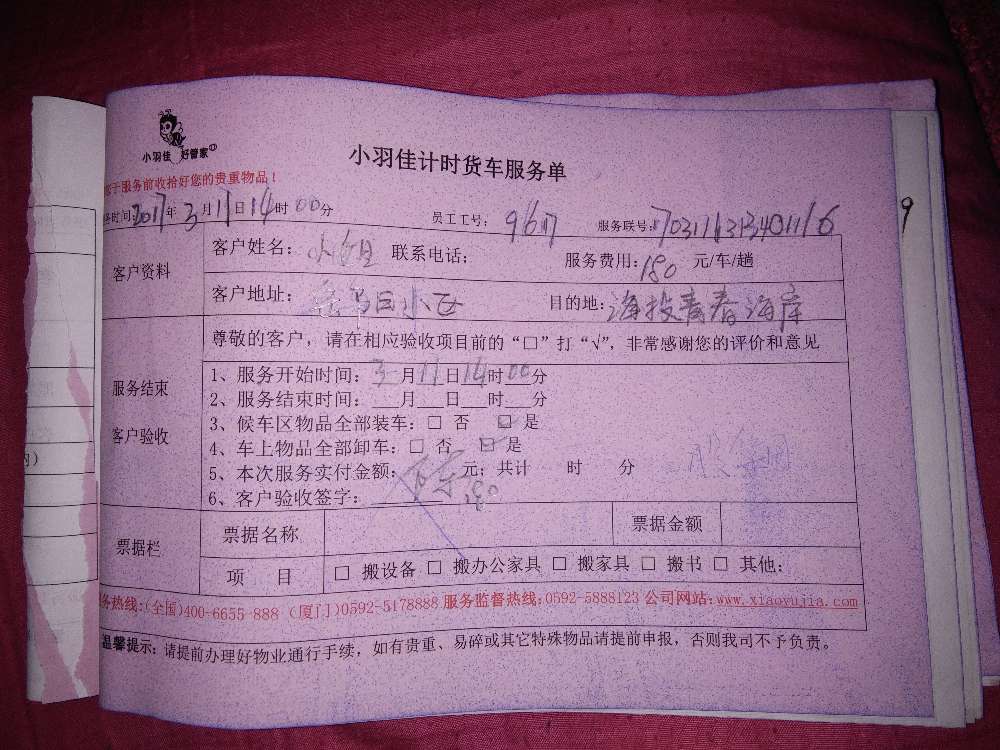 小羽佳 好管家
小羽佳计时货车服务单
于服务前收拾好您的贵重物品！
务时间:2017年3月11日14时00分 员工工号: 9617 服务联号:
9
客户资料
客户姓名: 小姐 联系电话: 服务费用:180 元/车/趟
客户地址: 小区 目的地:海投青春海岸
尊敬的客户，请在相应验收项目前的“□”打“√”，非常感谢您的评价和意见
服务结束
客户验收
1、服务开始时间: 3月11日14时00分
2、服务结束时间: 月 日 时 分
3、候车区物品全部装车: □ 否 ☑ 是
4、车上物品全部卸车: □ 否 ☑ 是
5、本次服务实付金额: 元; 共计 时 分
6、客户验收签字: 180
票据栏
票据名称 票据金额
项 目 □ 搬设备 □ 搬办公家具 □ 搬家具 □ 搬书 □ 其他:
务热线:(全国)400-6655-888 (厦门)0592-5178888 服务监督热线:0592-5888123 公司网站:www.xiaoyujia.com
温馨提示: 请提前办理好物业通行手续，如有贵重、易碎或其它特殊物品请提前申报，否则我司不予负责。